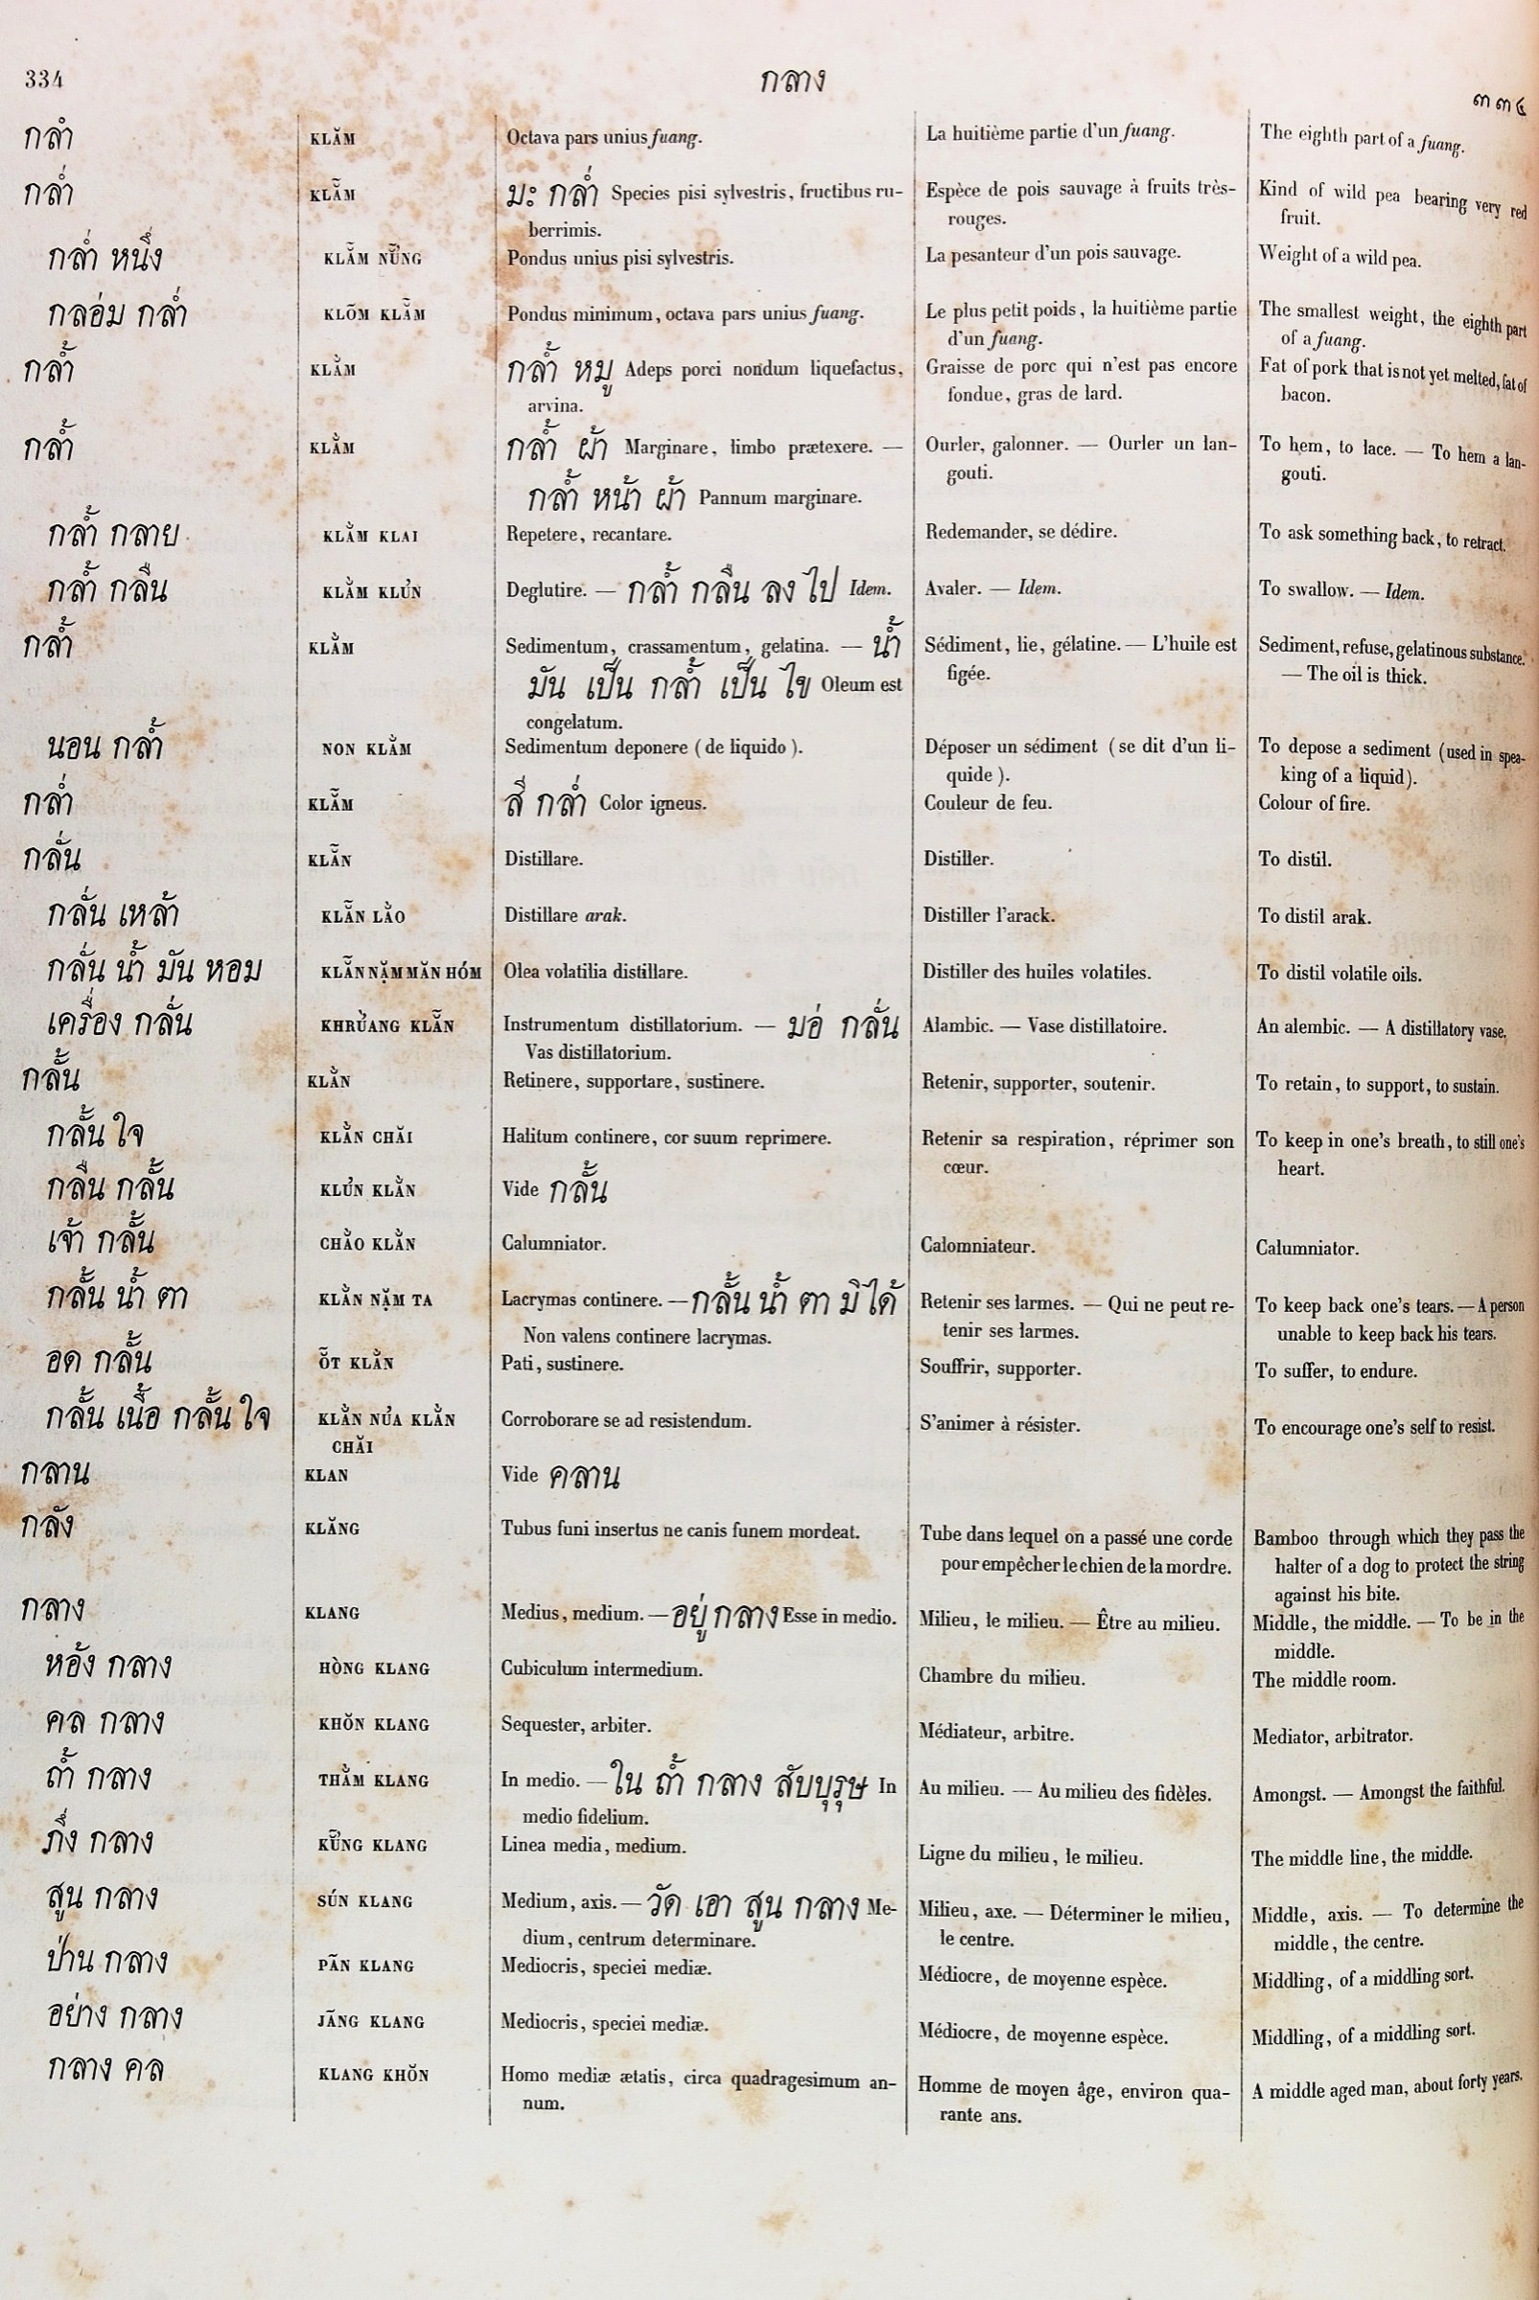 334
กลาง
๓๓๔
กลํา KLĂM Octava pars unius fuang. La huitième partie d'un fuang. The eighth part of a fuang.
กล่ำ KLẴM มะ กล่ำ Species pisi sylvestris, fructibus ru- Espèce de pois sauvage à fruits très- Kind of wild pea bearing very red
berrimis. rouges. fruit.
กล่ำ หนึ่ง KLẴM NỮNG Pondus unius pisi sylvestris. La pesanteur d'un pois sauvage. Weight of a wild pea.
กลอ่ม กล่ำ KLÕM KLẴM Pondus minimum, octava pars unius fuang. Le plus petit poids, la huitième partie The smallest weight, the eighth part
d'un fuang. of a fuang.
กล้ำ KLẰM กล้ำ หมู Adeps porci nondum liquefactus, Graisse de porc qui n'est pas encore Fat of pork that is not yet melted, fat of
arvina. fondue, gras de lard. bacon.
กล้ำ KLẰM กล้ำ ผ้า Marginare, limbo prætexere. — Ourler, galonner. — Ourler un lan- To hem, to lace. — To hem a lan-
กล้ำ หน้า ผ้า Pannum marginare. gouti. gouti.
กล้ำ กลาย KLẰM KLAI Repetere, recantare. Redemander, se dédire. To ask something back, to retract.
กล้ำ กลืน KLẰM KLỦN Deglutire. — กล้ำ กลืน ลง ไป Idem. Avaler. — Idem. To swallow. — Idem.
กล้ำ KLẰM Sedimentum, crassamentum, gelatina. — น้ำ Sédiment, lie, gélatine. — L'huile est Sediment, refuse, gelatinous substance.
มัน เป็น กล้ำ เป็น ไข Oleum est figée. — The oil is thick.
congelatum.
นอน กล้ำ NON KLẰM Sedimentum deponere (de liquido). Déposer un sédiment (se dit d'un li- To depose a sediment (used in spea-
quide). king of a liquid).
กล่ำ KLẴM สี กล่ำ Color igneus. Couleur de feu. Colour of fire.
กลั่น KLẴN Distillare. Distiller. To distil.
กลั่น เหล้า KLẴN LẰO Distillare arak. Distiller l'arack. To distil arak.
กลั่น น้ำ มัน หอม KLẴN NẶM MĂN HÓM Olea volatilia distillare. Distiller des huiles volatiles. To distil volatile oils.
เครื่อง กลั่น KHRỪANG KLẴN Instrumentum distillatorium. — มอ่ กลั่น Alambic. — Vase distillatoire. An alembic. — A distillatory vase.
Vas distillatorium.
กลั้น KLẰN Retinere, supportare, sustinere. Retenir, supporter, soutenir. To retain, to support, to sustain.
กลั้น ใจ KLẰN CHĂI Halitum continere, cor suum reprimere. Retenir sa respiration, réprimer son To keep in one's breath, to still one's
cœur. heart.
กลืน กลั้น KLỦN KLẰN Vide กลั้น
เจ้า กลั้น CHẰO KLẰN Calumniator. Calomniateur. Calumniator.
กลั้น น้ำ ตา KLẰN NẶM TA Lacrymas continere. — กลั้น น้ำ ตา มิ ได้ Retenir ses larmes. — Qui ne peut re- To keep back one's tears. — A person
Non valens continere lacrymas. tenir ses larmes. unable to keep back his tears.
อด กลั้น ŎT KLẰN Pati, sustinere. Souffrir, supporter. To suffer, to endure.
กลั้น เนื้อ กลั้น ใจ KLẰN NỦA KLẰN Corroborare se ad resistendum. S'animer à résister. To encourage one's self to resist.
CHĂI
กลาน KLAN Vide คลาน
กลัง KLĂNG Tubus funi insertus ne canis funem mordeat. Tube dans lequel on a passé une corde Bamboo through which they pass the
pour empêcher le chien de la mordre. halter of a dog to protect the string
against his bite.
กลาง KLANG Medius, medium. — อยู่ กลาง Esse in medio. Milieu, le milieu. — Être au milieu. Middle, the middle. — To be in the
middle.
หอ้ง กลาง HÒNG KLANG Cubiculum intermedium. Chambre du milieu. The middle room.
คล กลาง KHŎN KLANG Sequester, arbiter. Médiateur, arbitre. Mediator, arbitrator.
ถ้ำ กลาง THẰM KLANG In medio. — ใน ถ้ำ กลาง สับบุรุษ In Au milieu. — Au milieu des fidèles. Amongst. — Amongst the faithful.
medio fidelium.
กึ่ง กลาง KỮNG KLANG Linea media, medium. Ligne du milieu, le milieu. The middle line, the middle.
สูน กลาง SÚN KLANG Medium, axis. — วัด เอา สูน กลาง Me- Milieu, axe. — Déterminer le milieu, Middle, axis. — To determine the
dium, centrum determinare. le centre. middle, the centre.
ป่าน กลาง PÃN KLANG Mediocris, speciei mediæ. Médiocre, de moyenne espèce. Middling, of a middling sort.
อย่าง กลาง JÃNG KLANG Mediocris, speciei mediæ. Médiocre, de moyenne espèce. Middling, of a middling sort.
กลาง คล KLANG KHŎN Homo mediæ ætatis, circa quadragesimum an- Homme de moyen âge, environ qua- A middle aged man, about forty years.
num. rante ans.